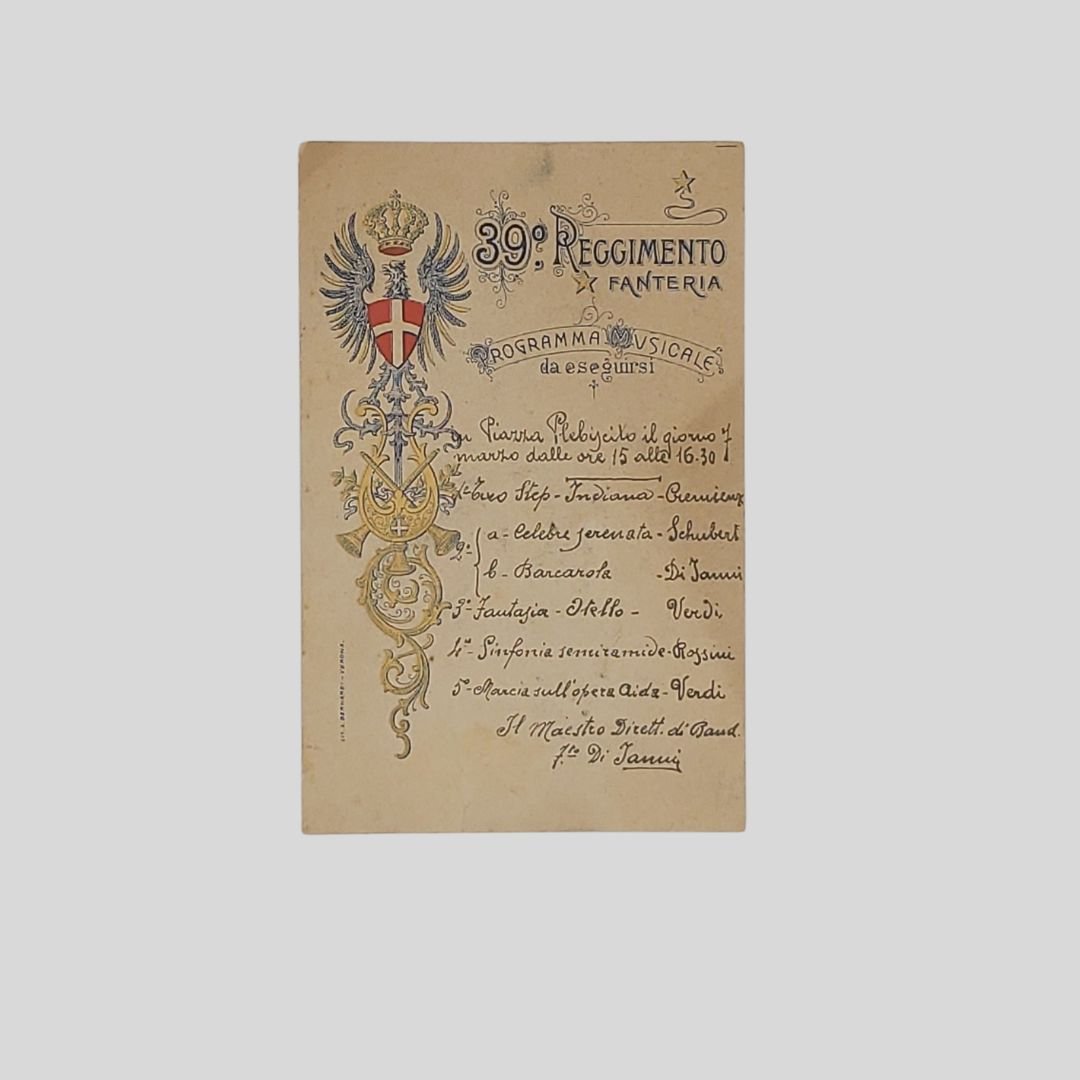 39º Reggimento
Fanteria
Programma Musicale
da eseguirsi
in Piazza Plebiscito il giorno 7
marzo dalle ore 15 alle 16.30
1º- Two Step - Indiana -
2º- a - Celebre serenata - Schubert
b - Barcarola - Di Janni
3º- Fantasia - Otello - Verdi
4º- Sinfonia semiramide - Rossini
5º- Marcia sull'opera Aida - Verdi
Il Maestro Dirett. di Band.
f.to Di Janni
Lit. A. Bernardi - Verona.